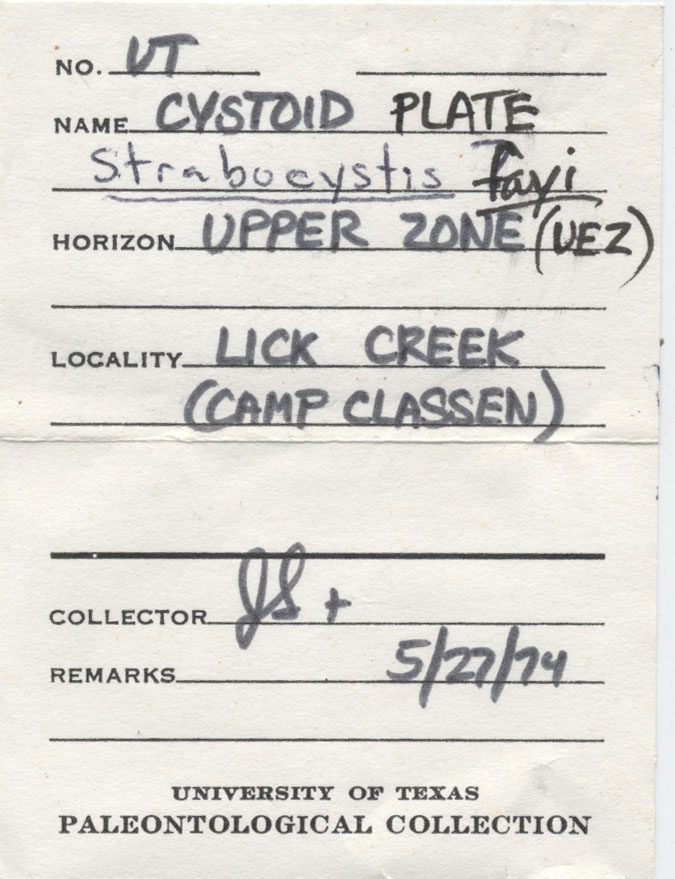 NO. UT
NAME CYSTOID PLATE
Strabocystis fayi
HORIZON UPPER ZONE (UEZ)
LOCALITY LICK CREEK
(CAMP CLASSEN)
COLLECTOR JS +
REMARKS 5/27/74
UNIVERSITY OF TEXAS
PALEONTOLOGICAL COLLECTION